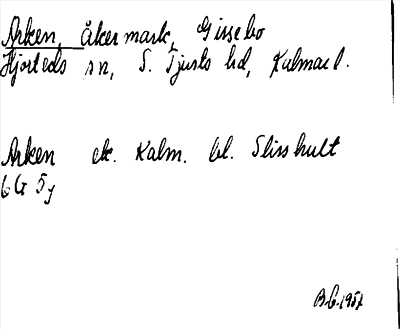 Arken, åkermark, Gissebo
Hjorteds sn, S. Tjusts hd, Kalmar l.
Arken ek. Kalm. bl. Slisshult
6G 5j